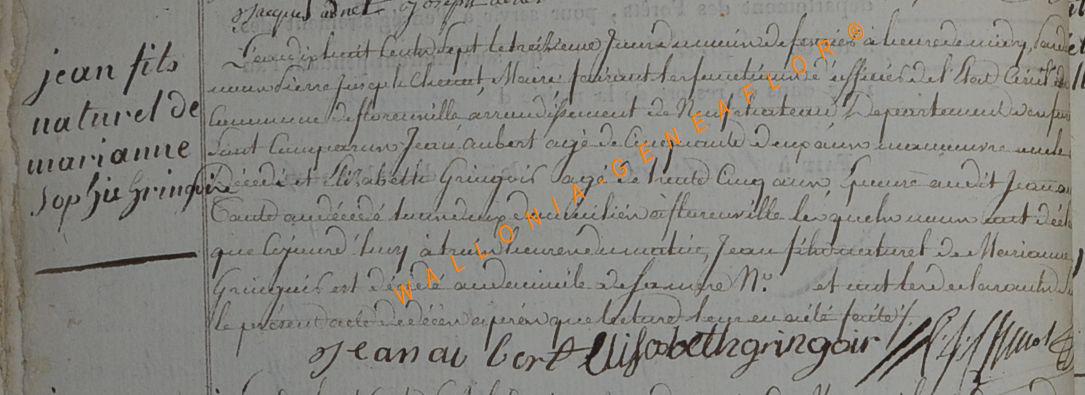 jacques adnet Joseph
jean fils
naturel de
marianne
Sophie gringoire
L'an dix huit cent sept le treizieme Jour du mois de fevrier à heure de midy, Pardevant
nous Pierre Joseph Maire faisant les fonctions d'officier de l'Etat Civil de la
Commune de florenville arrondissement de Neufchateau Departement des forets
Sont Comparus Jean aubert agé de Cinquante deux ans manoeuvre oncle
décédé et Elizabeth Gringois agé de trente Cinq ans, Epouse audit Jean
tante au décédé tous deux domicilié à florenville lesquels nous ont déclaré
que cejourd'huy à trois heures du matin, Jean fils naturel de Marianne
Gringois est décédé au domicile de sa mere N.° et ont les declarants
le présent acte de décès après que lecture leur en a été faite /.
Jean au bert Elisabeth gringoir
WALLONIA-GENEAFLOR®